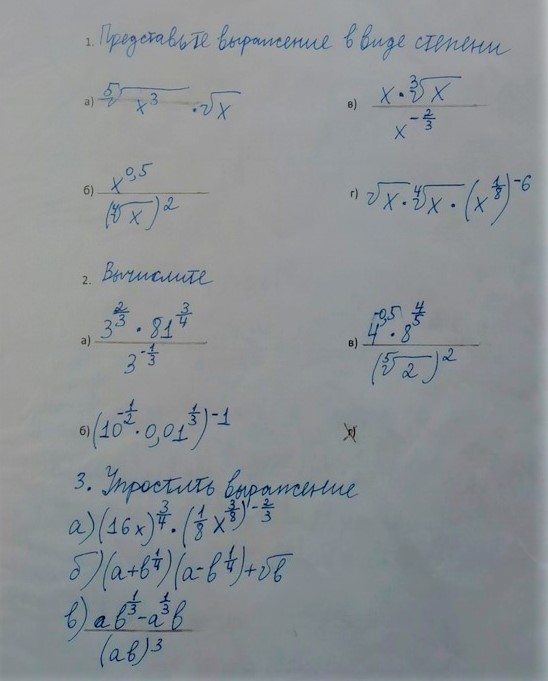 1. Представьте выражение в виде степени
а) ⁵√x³ · √x
в) (x · ³√x) / x^(-2/3)
б) x^(0,5) / (⁴√x)²
г) √x · ⁴√x · (x^(1/8))^(-6)
2. Вычислите
а) (3^(2/3) · 81^(3/4)) / 3^(-1/3)
в) (4^(0,5) · 8^(4/5)) / (⁵√2)²
б) (10^(-1/2) · 0,01^(1/3))^(-1)
г)
3. Упростить выражение
а) (16x)^(3/4) · (1/8 x^(3/8))^(-2/3)
б) (a+b^(1/4))(a-b^(1/4))+√b
в) (ab^(1/3) - a^(1/3)b) / (ab)³